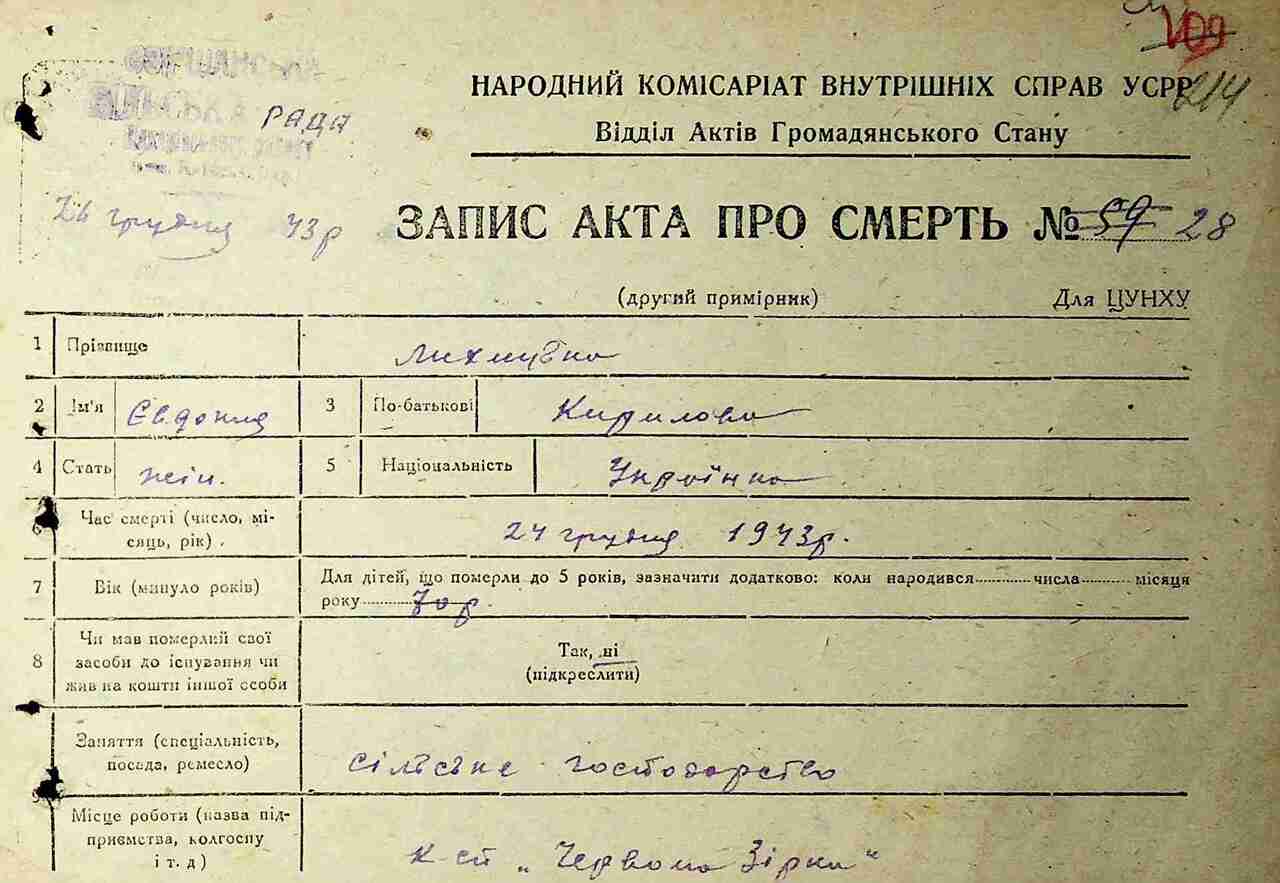 109
214
НАРОДНИЙ КОМІСАРІАТ ВНУТРІШНІХ СПРАВ УСРР
Відділ Актів Громадянського Стану
РАДА
26 грудня 43 р
ЗАПИС АКТА ПРО СМЕРТЬ № 59 28
(другий примірник) Для ЦУНХУ
1 Прізвище
2 Ім'я Євдокия 3 По-батькові Кирилова
4 Стать жін. 5 Національність Українка
6 Час смерті (число, мі-
сяць, рік) . 24 грудня 1943р.
7 Вік (минуло років) Для дітей, що померли до 5 років, зазначити додатково: коли народився числа місяця
року 70 р.
Чи мав померлий свої
8 засоби до існування чи Так, ні
жив на кошти іншої особи (підкреслити)
Заняття (спеціальність,
посада, ремесло) сільське господарство
9
Місце роботи (назва під-
приємства, колгоспу
і т. д) к-сп „Червона Зірка“